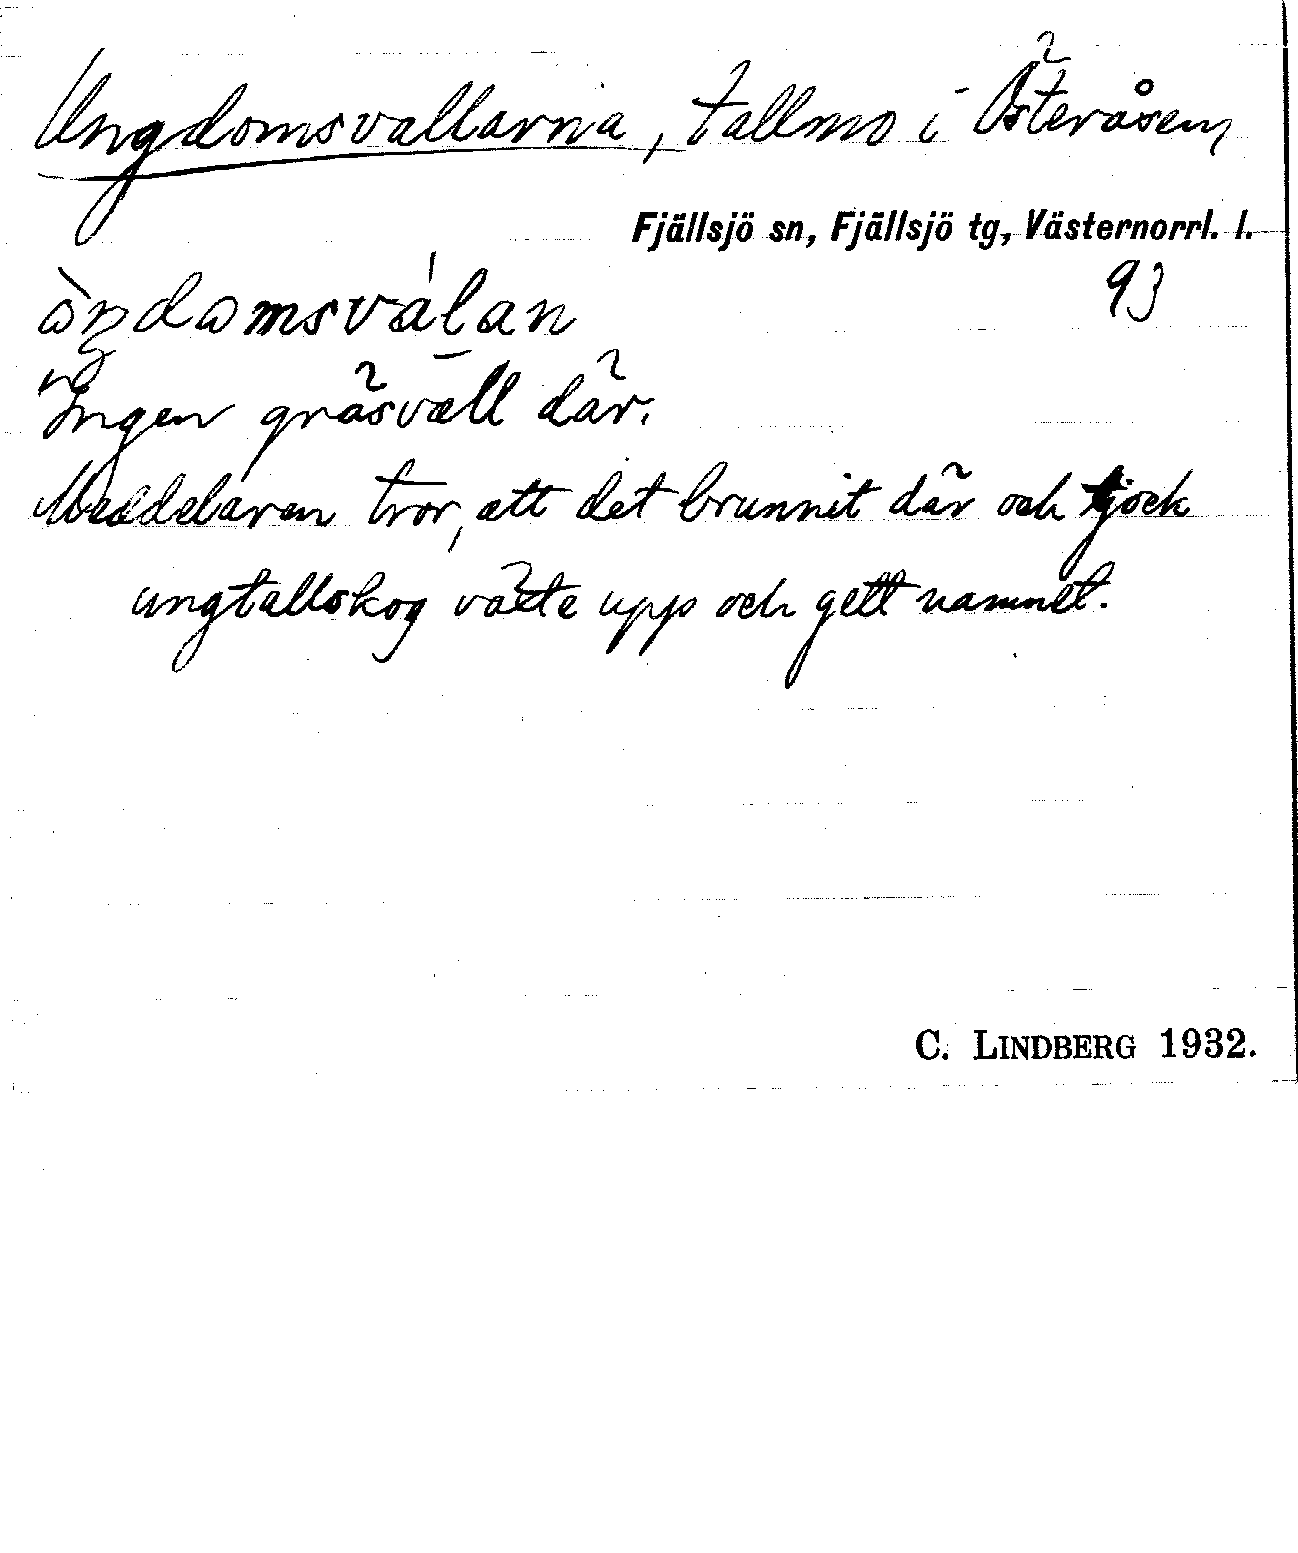 Ungdomsvallarna, tallmo i Österåsen
Fjällsjö sn, Fjällsjö tg, Västernorrl. l.
93
Ingen gräsvall där.
Meddelaren tror, att det brunnit där och tjock
ungtallskog växte upp och gett namnet.
C. LINDBERG 1932.